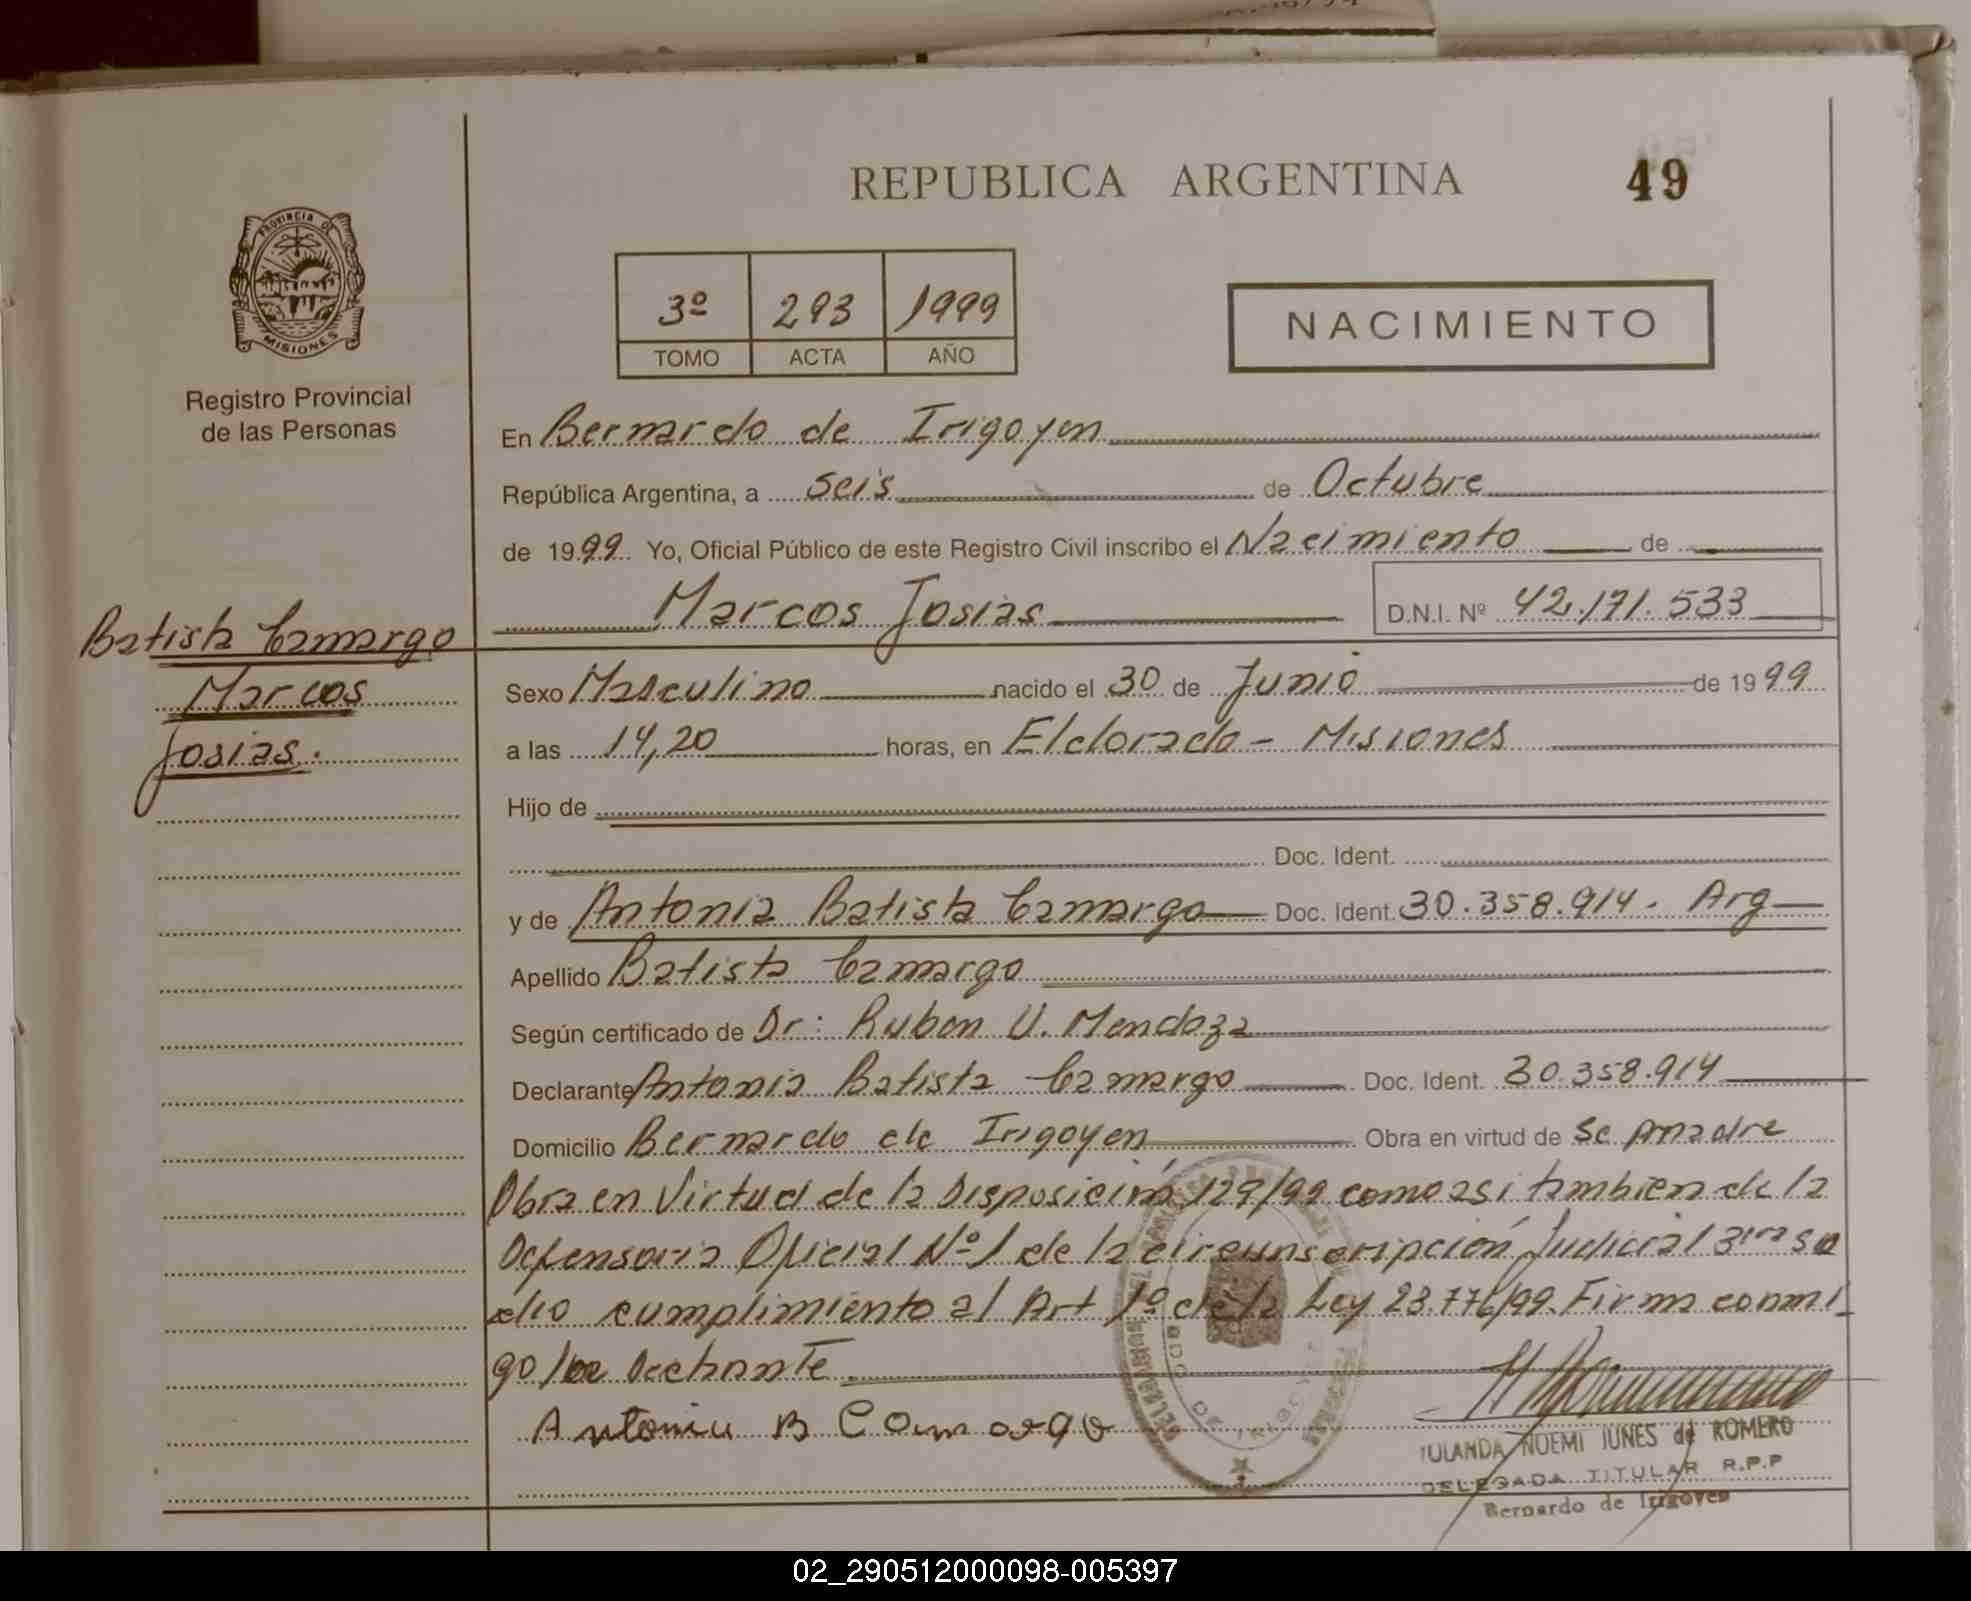 REPUBLICA ARGENTINA
49
PROVINCIA DE
MISIONES
Registro Provincial
de las Personas
3º 293 1999
TOMO ACTA AÑO
NACIMIENTO
En Bernardo de Irigoyen
República Argentina, a seis de Octubre
de 1999 Yo, Oficial Público de este Registro Civil inscribo el Nacimiento de
Marcos Josias D.N.I. Nº 42.171.533
Batista Camargo
Marcos
Josias.
Sexo Masculino nacido el 30 de Junio de 1999
a las 14,20 horas, en Eldorado - Misiones
Hijo de
Doc. Ident.
y de Antonia Batista Camargo Doc. Ident. 30.358.914. Arg
Apellido Batista Camargo
Según certificado de Dr: Ruben U. Mendoza
Declarante Antonia Batista Camargo Doc. Ident. 30.358.914
Domicilio Bernardo de Irigoyen Obra en virtud de se madre
Obra en Virtud de la Disposición 129/99 como asi tambien de la
Defensoria Oficial Nº 1 de la circunscripción Judicial 3ra se
dio cumplimiento al Art 1º de la Ley 23.776/99. Firma conmi
go la
Antonia B Camargo
NOEMI JUNES de ROMERO
DELEGADA TITULAR R.P.P
Bernardo de Irigoyen
02_290512000098-005397